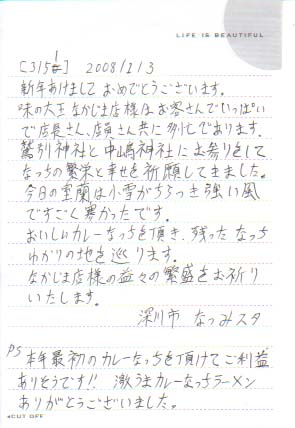 LIFE IS BEAUTIFUL
[315] 2008/1/3
新年あけましておめでとうございます。
味の大王なかじま店様はお客さんでいっぱい
で店長さん、店員さん共に多忙であります。
鷲別神社と中嶋神社にお参りをして
なっちの繁栄と幸せを祈願してきました。
今日の室蘭は小雪がちらつき強い風
ですごく寒かったです。
おいしいカレーなっちを頂き、残ったなっち
ゆかりの地を巡ります。
なかじま店様の益々の繁盛をお祈り
いたします。
深川市 なつみスタ
PS 本年最初のカレーなっちを頂けてご利益
ありそうです!! 激うまカレーなっちラーメン
ありがとうございました。
◂CUT OFF